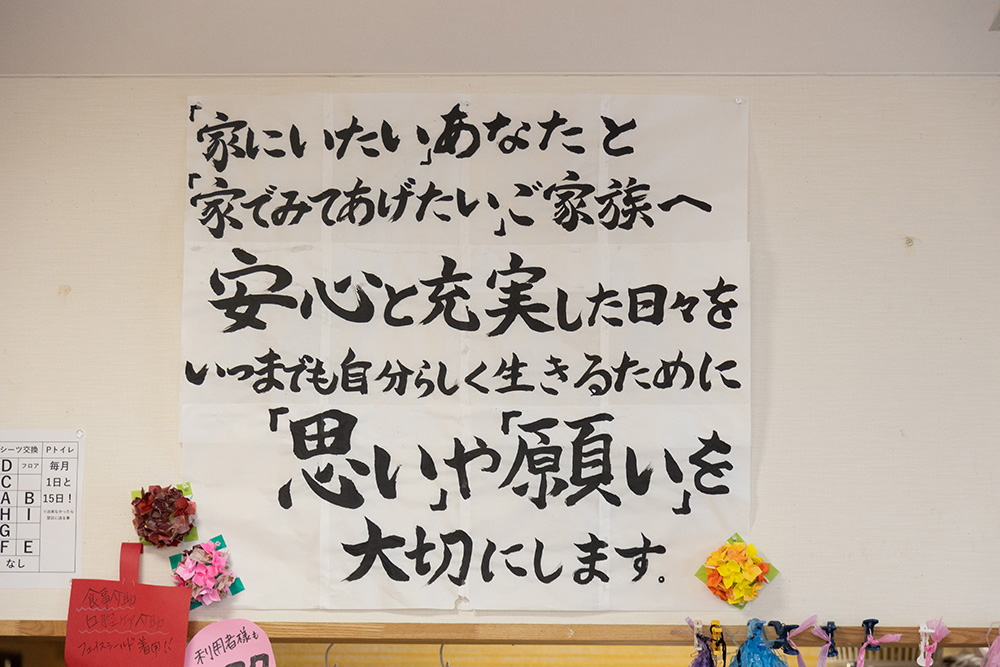 「家にいたい」あなたと
「家でみてあげたい」ご家族へ
安心と充実した日々を
いつまでも自分らしく生きるために
「思い」や「願い」を
大切にします。
シーツ交換 Pトイレ
D フロア 毎月
C 1日と
A B 15日！
H I
G
F E
なし
食事介助
口腔ケア介助
フェイスシールド着用!!
利用者様も